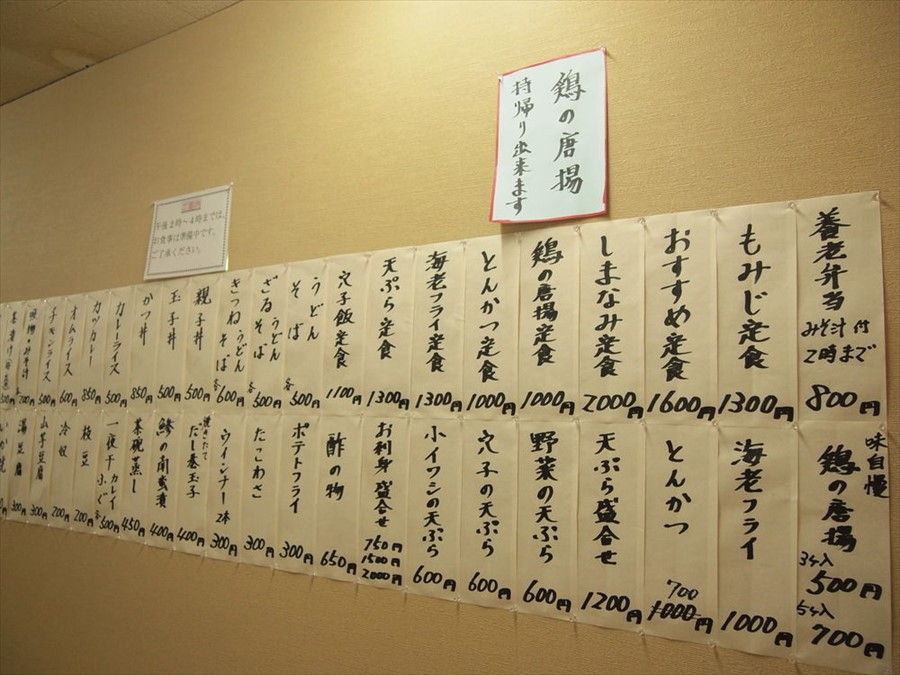 鶏の唐揚
持帰り出来ます
午後2時〜4時までは、
お食事は準備中です。
ご了承ください。
養老弁当
みそ汁付
2時まで
800円
もみじ定食
1300円
おすすめ定食
1600円
しまなみ定食
2000円
鶏の唐揚定食
1000円
とんかつ定食
1000円
海老フライ定食
1300円
天ぷら定食
1300円
穴子飯定食
1100円
うどん
そば
各500円
ざるうどん
そば
各500円
きつねうどん
そば
各600円
親子丼
500円
玉子丼
500円
かつ丼
850円
カレーライス
500円
カツカレー
850円
オムライス
600円
チキンライス
500円
味自慢
鶏の唐揚
3ケ入
500円
5ケ入
700円
海老フライ
1000円
とんかつ
700
1000円
天ぷら盛合せ
1200円
野菜の天ぷら
600円
穴子の天ぷら
600円
小イワシの天ぷら
600円
お刺身盛合せ
750円
1500円
2000円
酢の物
650円
ポテトフライ
300円
たこわさ
300円
ウインナー2本
300円
焼きたて
だし巻玉子
400円
鯵の南蛮漬
400円
茶碗蒸し
450円
一夜干 カレイ
小ぐ
各500円
枝豆
200円
冷奴
200円
山芋豆腐
300円
湯豆腐
300円